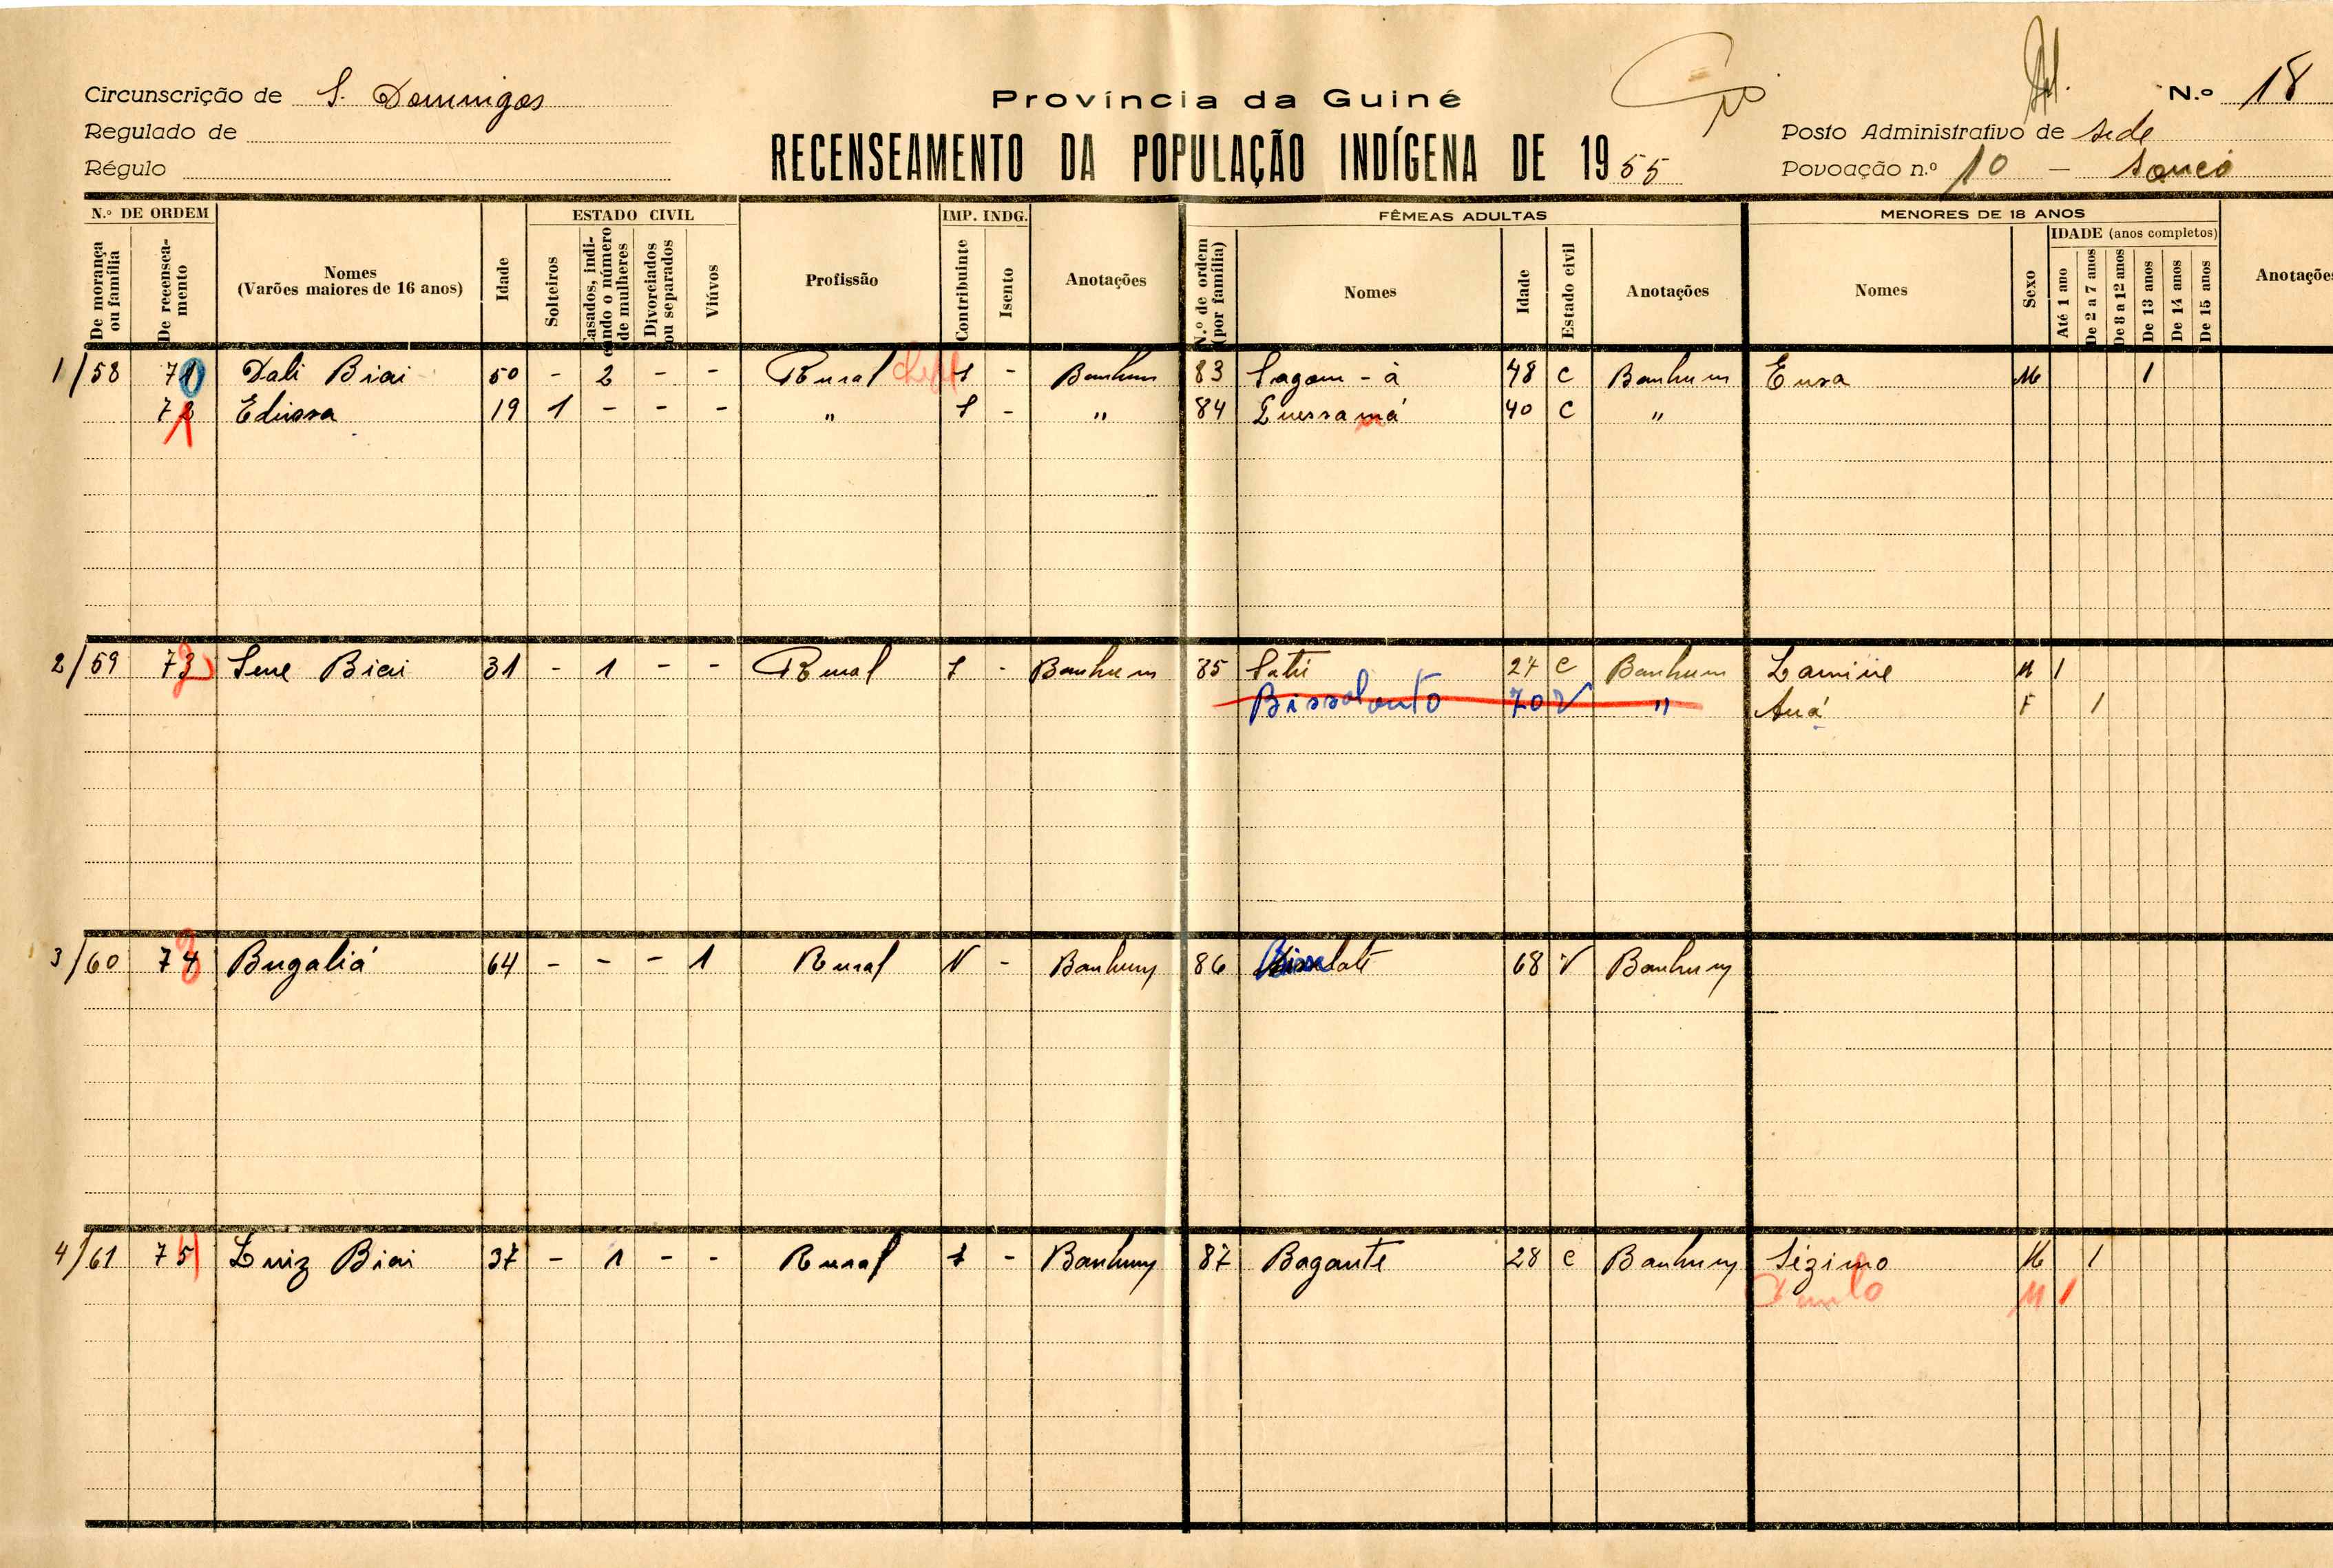 Circunscrição de S. Domingos
Regulado de
Régulo
Província da Guiné
RECENSEAMENTO DA POPULAÇÃO INDÍGENA DE 1955
N.º 18
Posto Administrativo de sede
Povoação n.º 10 –
N.º DE ORDEM
De morança ou família
De recenseamento
Nomes
(Varões maiores de 16 anos)
Idade
ESTADO CIVIL
Solteiros
Casados, indicando o número de mulheres
Divorciados ou separados
Viúvos
Profissão
IMP. INDG.
Contribuinte
Isento
Anotações
FÊMEAS ADULTAS
N.º de ordem (por família)
Nomes
Idade
Estado civil
Anotações
MENORES DE 18 ANOS
Nomes
Sexo
IDADE (anos completos)
Até 1 ano
De 2 a 7 anos
De 8 a 12 anos
De 13 anos
De 14 anos
De 15 anos
Anotações
1/58 Dali Biai 50 - 2 - - Rural chefe - Banhum 83 Sagam - à 48 C Banhum M 1
19 1 - - - " - " 84 40 C "
2/59 Sene Biai 31 - 1 - - Rural - Banhum 85 Sati 27 C Banhum Lamine M 1
70 V " Auá F 1
3/60 Bugaliá 64 - - - 1 Rural N - Banhum 86 68 V Banhum
4/61 Luiz Biai 37 - 1 - - Rural - Banhum 87 Bagante 28 C Banhum Sézimo M 1
M 1